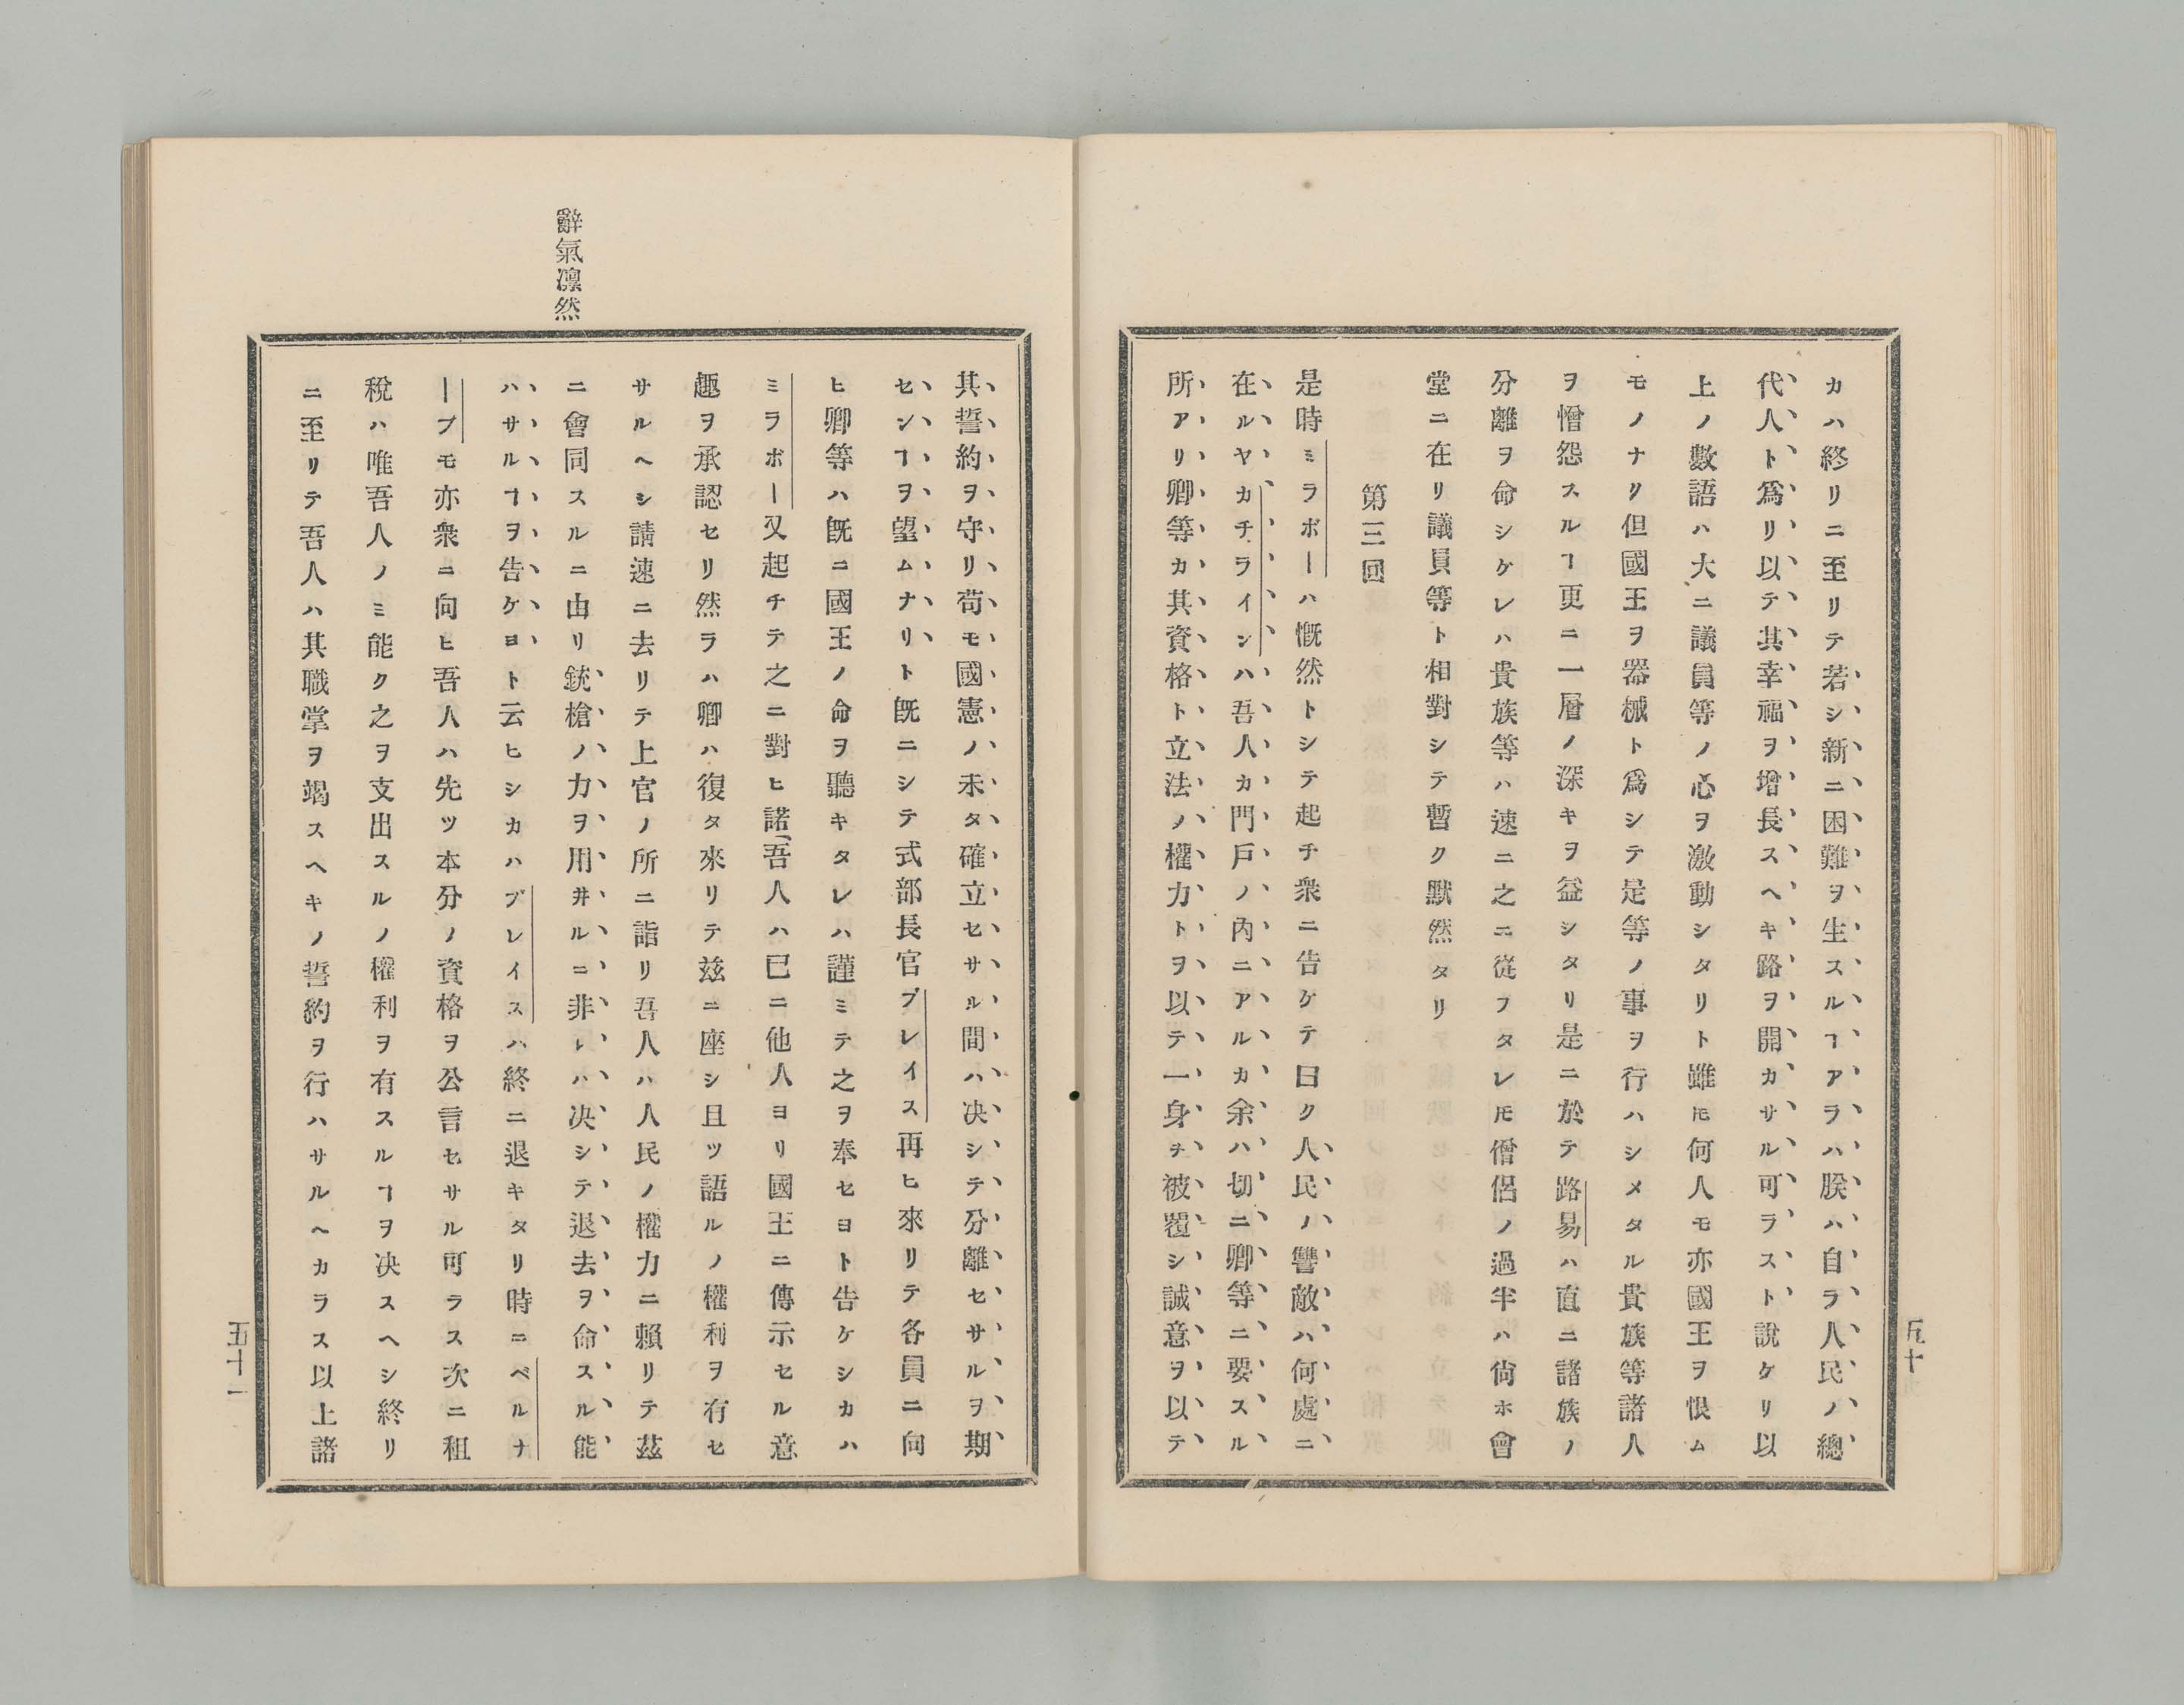 カハ終リニ至リテ若シ新ニ困難ヲ生スルヿアラハ朕ハ自ラ人民ノ總
代人ト爲リ以テ其幸福ヲ增長スヘキ路ヲ開カサル可ラスト說ケリ以
上ノ數語ハ大ニ議員等ノ心ヲ激動シタリト雖𪜈何人モ亦國王ヲ恨ム
モノナク但國王ヲ器械ト爲シテ是等ノ事ヲ行ハシメタル貴族等諸人
ヲ憎怨スルヿ更ニ一層ノ深キヲ益シタリ是ニ於テ路易ハ直ニ諸族ノ
分離ヲ命シケレハ貴族等ハ速ニ之ニ從フタレ𪜈僧侶ノ過半ハ尙ホ會
堂ニ在リ議員等ト相對シテ暫ク默然タリ
第三回
是時ミラボーハ慨然トシテ起チ衆ニ告ケテ曰ク人民ノ讐敵ハ何處ニ
在ルヤカチラインハ吾人カ門戶ノ內ニアルカ余ハ切ニ卿等ニ要スル
所アリ卿等カ其資格ト立法ノ權力トヲ以テ一身ヲ被覆シ誠意ヲ以テ
五十
其誓約ヲ守リ苟モ國憲ノ未タ確立セサル間ハ決シテ分離セサルヲ期
センヿヲ望ムナリト既ニシテ式部長官ブレイス再ヒ來リテ各員ニ向
ヒ卿等ハ既ニ國王ノ命ヲ聽キタレハ謹ミテ之ヲ奉セヨト告ケシカハ
ミラボー又起チテ之ニ對ヒ諾(吾人ハ已ニ他人ヨリ國王ニ傳示セル意
趣ヲ承認セリ然ラハ卿ハ復タ來リテ茲ニ座シ且ツ語ルノ權利ヲ有セ
サルヘシ請速ニ去リテ上官ノ所ニ詣リ吾人ハ人民ノ權力ニ賴リテ茲
ニ會同スルニ由リ銃槍ノ力ヲ用井ルニ非レハ決シテ退去ヲ命スル能
ハサルヿヲ告ケヨト云ヒシカハブレイスハ終ニ退キタリ時ニベルナ
ーブモ亦衆ニ向ヒ吾人ハ先ツ本分ノ資格ヲ公言セサル可ラス次ニ租
稅ハ唯吾人ノミ能ク之ヲ支出スルノ權利ヲ有スルヿヲ決スヘシ終リ
ニ至リテ吾人ハ其職掌ヲ竭スヘキノ誓約ヲ行ハサルヘカラス以上諸
辭氣凛然
五十一